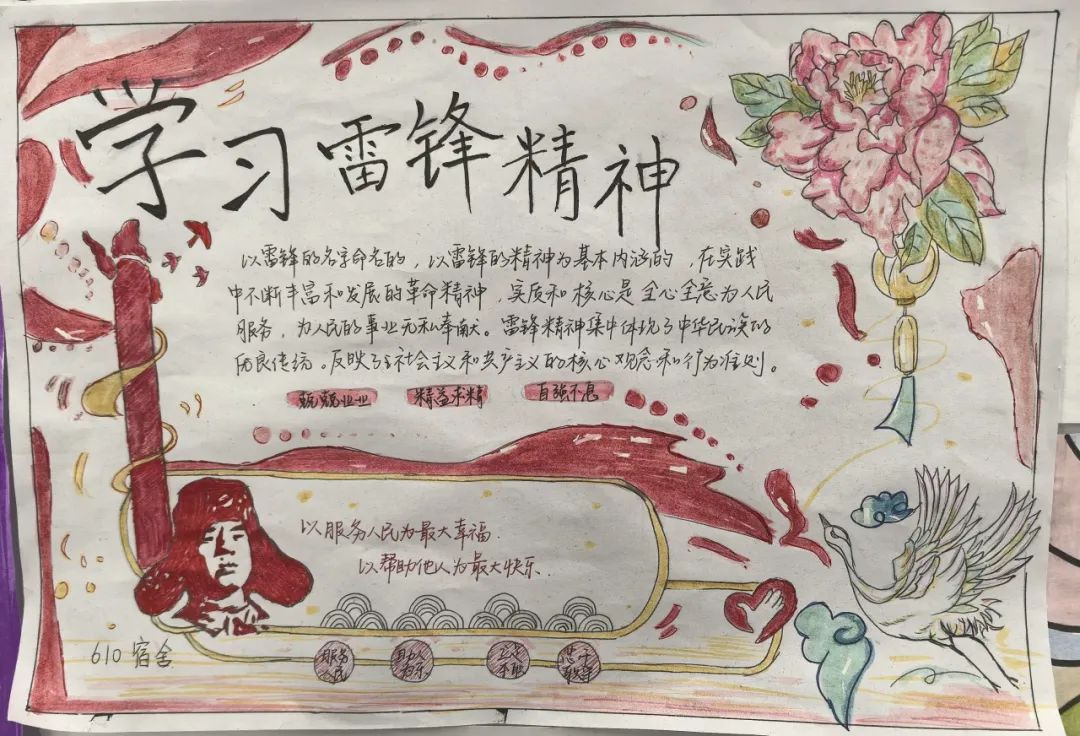 学习雷锋精神
以雷锋的名字命名的，以雷锋的精神为基本内涵的，在实践
中不断丰富和发展的革命精神，实质和核心是全心全意为人民
服务，为人民的事业无私奉献。雷锋精神集中体现了中华民族的
优良传统。反映了社会主义和共产主义的核心观念和行为准则。
兢兢业业 精益求精 自强不息
以服务人民为最大幸福
以帮助他人为最大快乐.
服务人民 助人 忠于
610宿舍